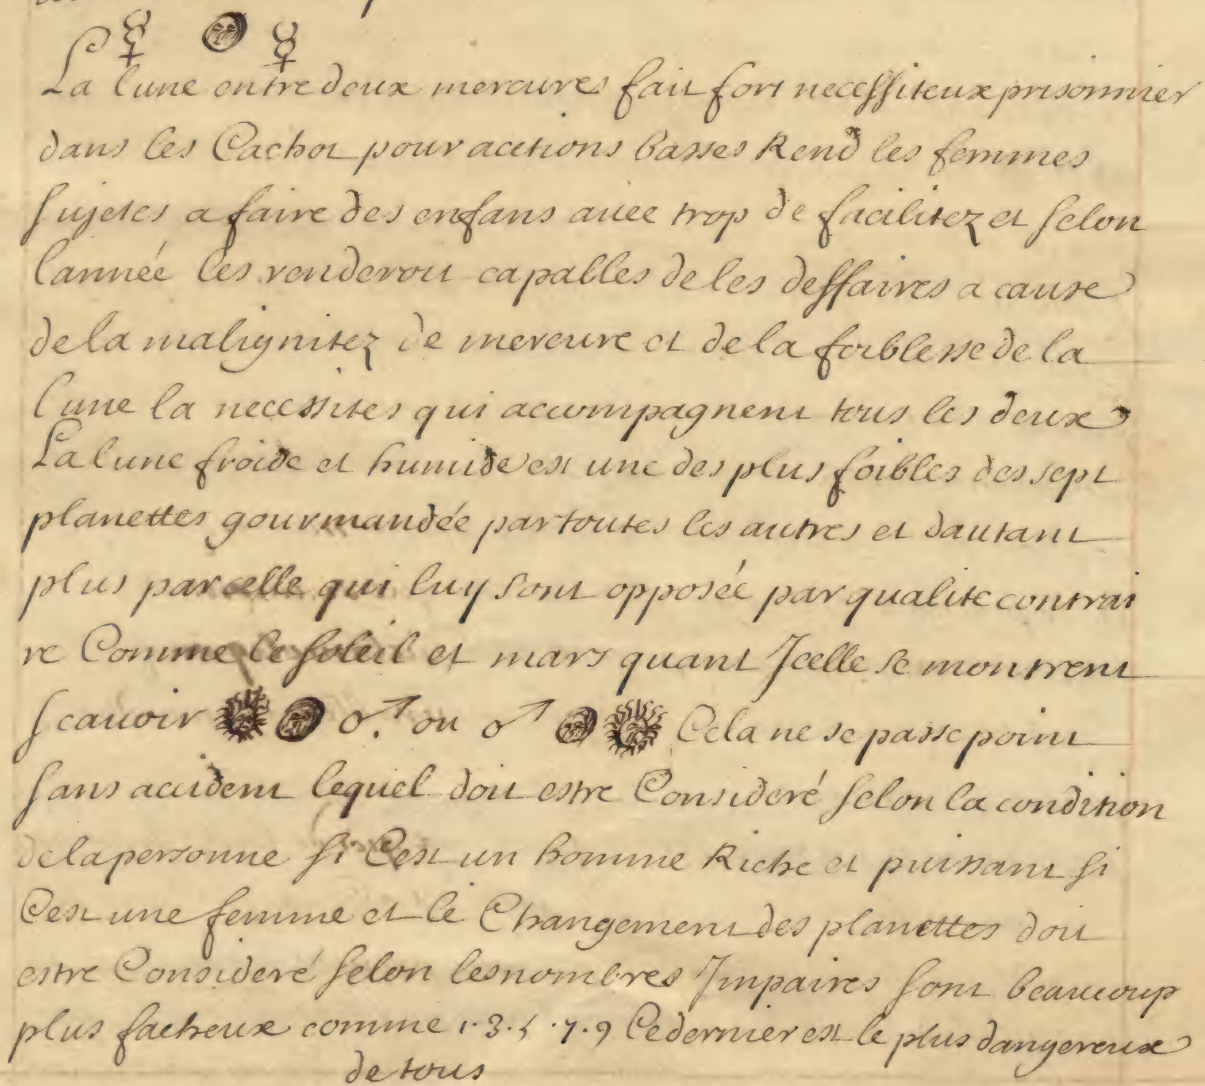 ☿ ☽ ☿
La lune entre deux mercures fait fort necessiteux prisonnier
dans les Cachot pour acitions basses Rend les femmes
sujetes a faire des enfans avec trop de facilitez et selon
lannéé les renderoit capables de les deffaires a cause
de la malignitez de mercure et de la foiblesse de la
lune la necessites qui accompagnent tous les deux
La lune froide et humide est une des plus foibles des sept
planettes gourmandée par toutes les autres et dautant
plus par celle qui luy sont opposée par qualite contrai
re Comme le soleil et mars quant Jcelle se montrent
scauoir ☉ ☽ ♂. ou ♂ ☽ ☉ Cela ne se passe point
sans accident lequel doit estre Consideré selon la condition
de la personne si Cest un homme Riche et puissant si
Cest une femme et le Changement des planettes doit
estre Consideré selon les nombres Jmpaires sont beaucoup
plus facheux comme 1.3.5.7.9 Ce dernier est le plus dangereux
de tous